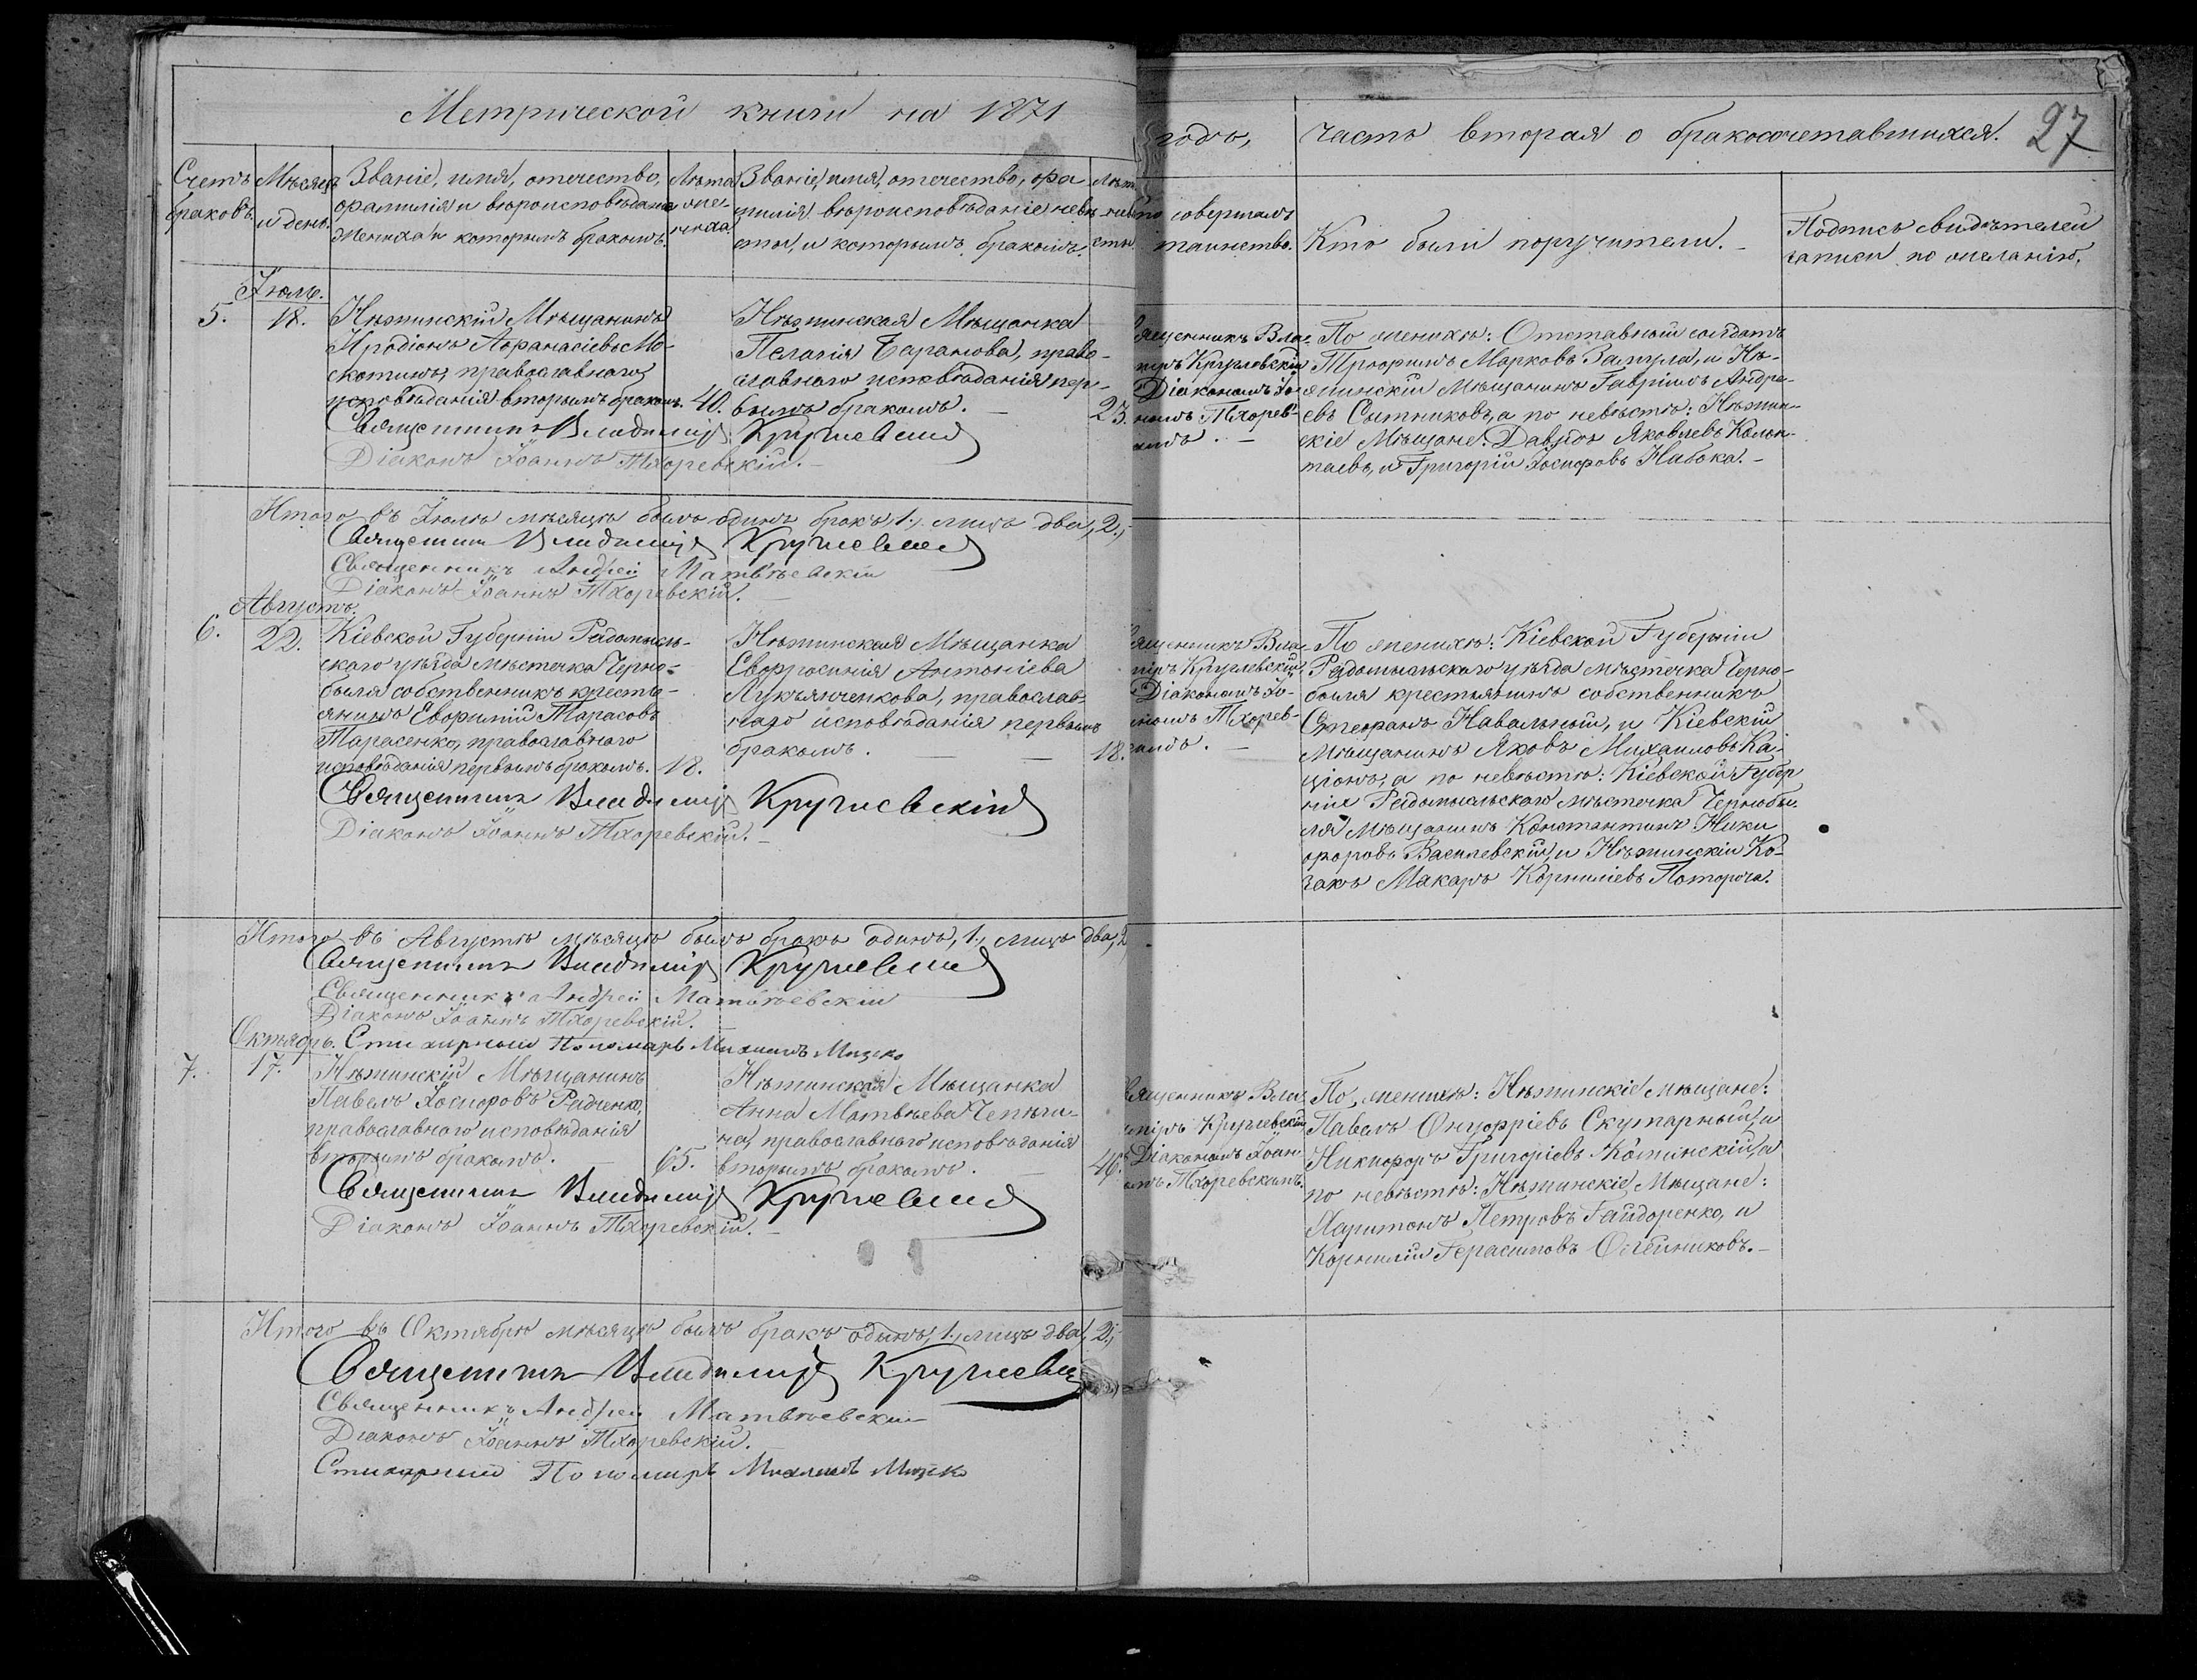 Метрической книги на 1871
годъ, часть вторая о бракосочетавшихся. 27
Счетъ браковъ.
Мѣсяцъ и день.
Званіе, имя, отчество,
фамилія и вѣроисповѣданіе
жениха и которымъ бракомъ.
Лѣта жениха.
Званіе, имя, отчество, фа-
милія, вѣроисповѣданіе невѣ-
сты, и которымъ бракомъ.
совершалъ
таинство.
Кто были поручители.
Подпись свидѣтелей
записи по желанію.
Іюль.
5. 18.
Нѣжинскій Мѣщанинъ
Иродіонъ Афанасіевъ Мо-
скотинъ, православнаго
исповѣданія вторымъ бракомъ. 40.
Нѣжинская Мѣщанка
Пелагія Баранова, право-
славнаго исповѣданія пер-
вымъ бракомъ. 23.
Священникъ Владиміръ Кругневскій
Діаконъ Іоаннъ Тхоревскій.
По женихѣ: Отставный солдатъ
Трофимъ Марковъ Вапула, и Нѣ-
жинскій Мѣщанинъ Гавріилъ Андре-
евъ Ситниковъ, а по невѣстѣ: Нѣжин-
скіе Мѣщане: Давидъ Яковлевъ Колон-
таевъ, и Григорій Іосифовъ Набока.
Итого въ Іюлѣ мѣсяцѣ былъ одинъ бракъ, 1., лицъ два, 2.,
Священникъ Владиміръ Кругневскій
Священникъ Андрей Матвѣевскій
Діаконъ Іоаннъ Тхоревскій.
Августъ.
6. 22.
Кіевской Губерніи Радомысль-
скаго уѣзда мѣстечка Черно-
быля собственникъ кресть-
янинъ Евфимій Тарасовъ
Тарасенко, православнаго
исповѣданія первымъ бракомъ. 18.
Нѣжинская Мѣщанка
Евфросинія Антоніева
Лукъянченкова, православ-
наго исповѣданія первымъ
бракомъ. 18.
Священникъ Владиміръ Кругневскій
Діаконъ Іоаннъ Тхоревскій.
По женихѣ: Кіевской Губерніи
Радомысльскаго уѣзда мѣстечка Черно-
быля крестьянинъ собственникъ
Стефанъ Навальный, и Кіевскій
Мѣщанинъ Яковъ Михаиловъ Ка-
ціонъ, а по невѣстѣ: Кіевской Губер
ніи Радомысльскаго мѣстечка Чернобы-
ля Мѣщанинъ Константинъ Ники
форовъ Василевскій, и Нѣжинскій Ко-
закъ Макаръ Корниліевъ Поторочa.
Итого въ Августѣ мѣсяцѣ былъ бракъ одинъ, 1., лицъ два, 2
Священникъ Владиміръ Кругневскій
Священникъ Андрей Матвѣевскій
Діаконъ Іоаннъ Тхоревскій.
Стихарный Пономарь Михаилъ Мицко
Октябрь.
7. 17.
Нѣжинскій Мѣщанинъ
Павелъ Іосифовъ Радченко,
православнаго исповѣданія
вторымъ бракомъ. 65.
Нѣжинская Мѣщанка
Анна Матвѣева Чепѣги-
на, православнаго исповѣданія
вторымъ бракомъ. 46.
Священникъ Владиміръ Кругневскій
Діаконъ Іоаннъ Тхоревскій.
По женихѣ: Нѣжинскіе мѣщане:
Павелъ Онуфріевъ Скутарный, и
Никифоръ Григоріевъ Коминскій, а
по невѣстѣ: Нѣжинскіе Мѣщане:
Харитонъ Петровъ Гайдоренко, и
Корнилій Герасимовъ Олейниковъ.
Итого въ Октябрѣ мѣсяцѣ былъ бракъ одинъ, 1., лицъ два, 2.,
Священникъ Владиміръ Кругневскій
Священникъ Андрей Матвѣевскій
Діаконъ Іоаннъ Тхоревскій.
Стихарный Пономарь Михаилъ Мицко